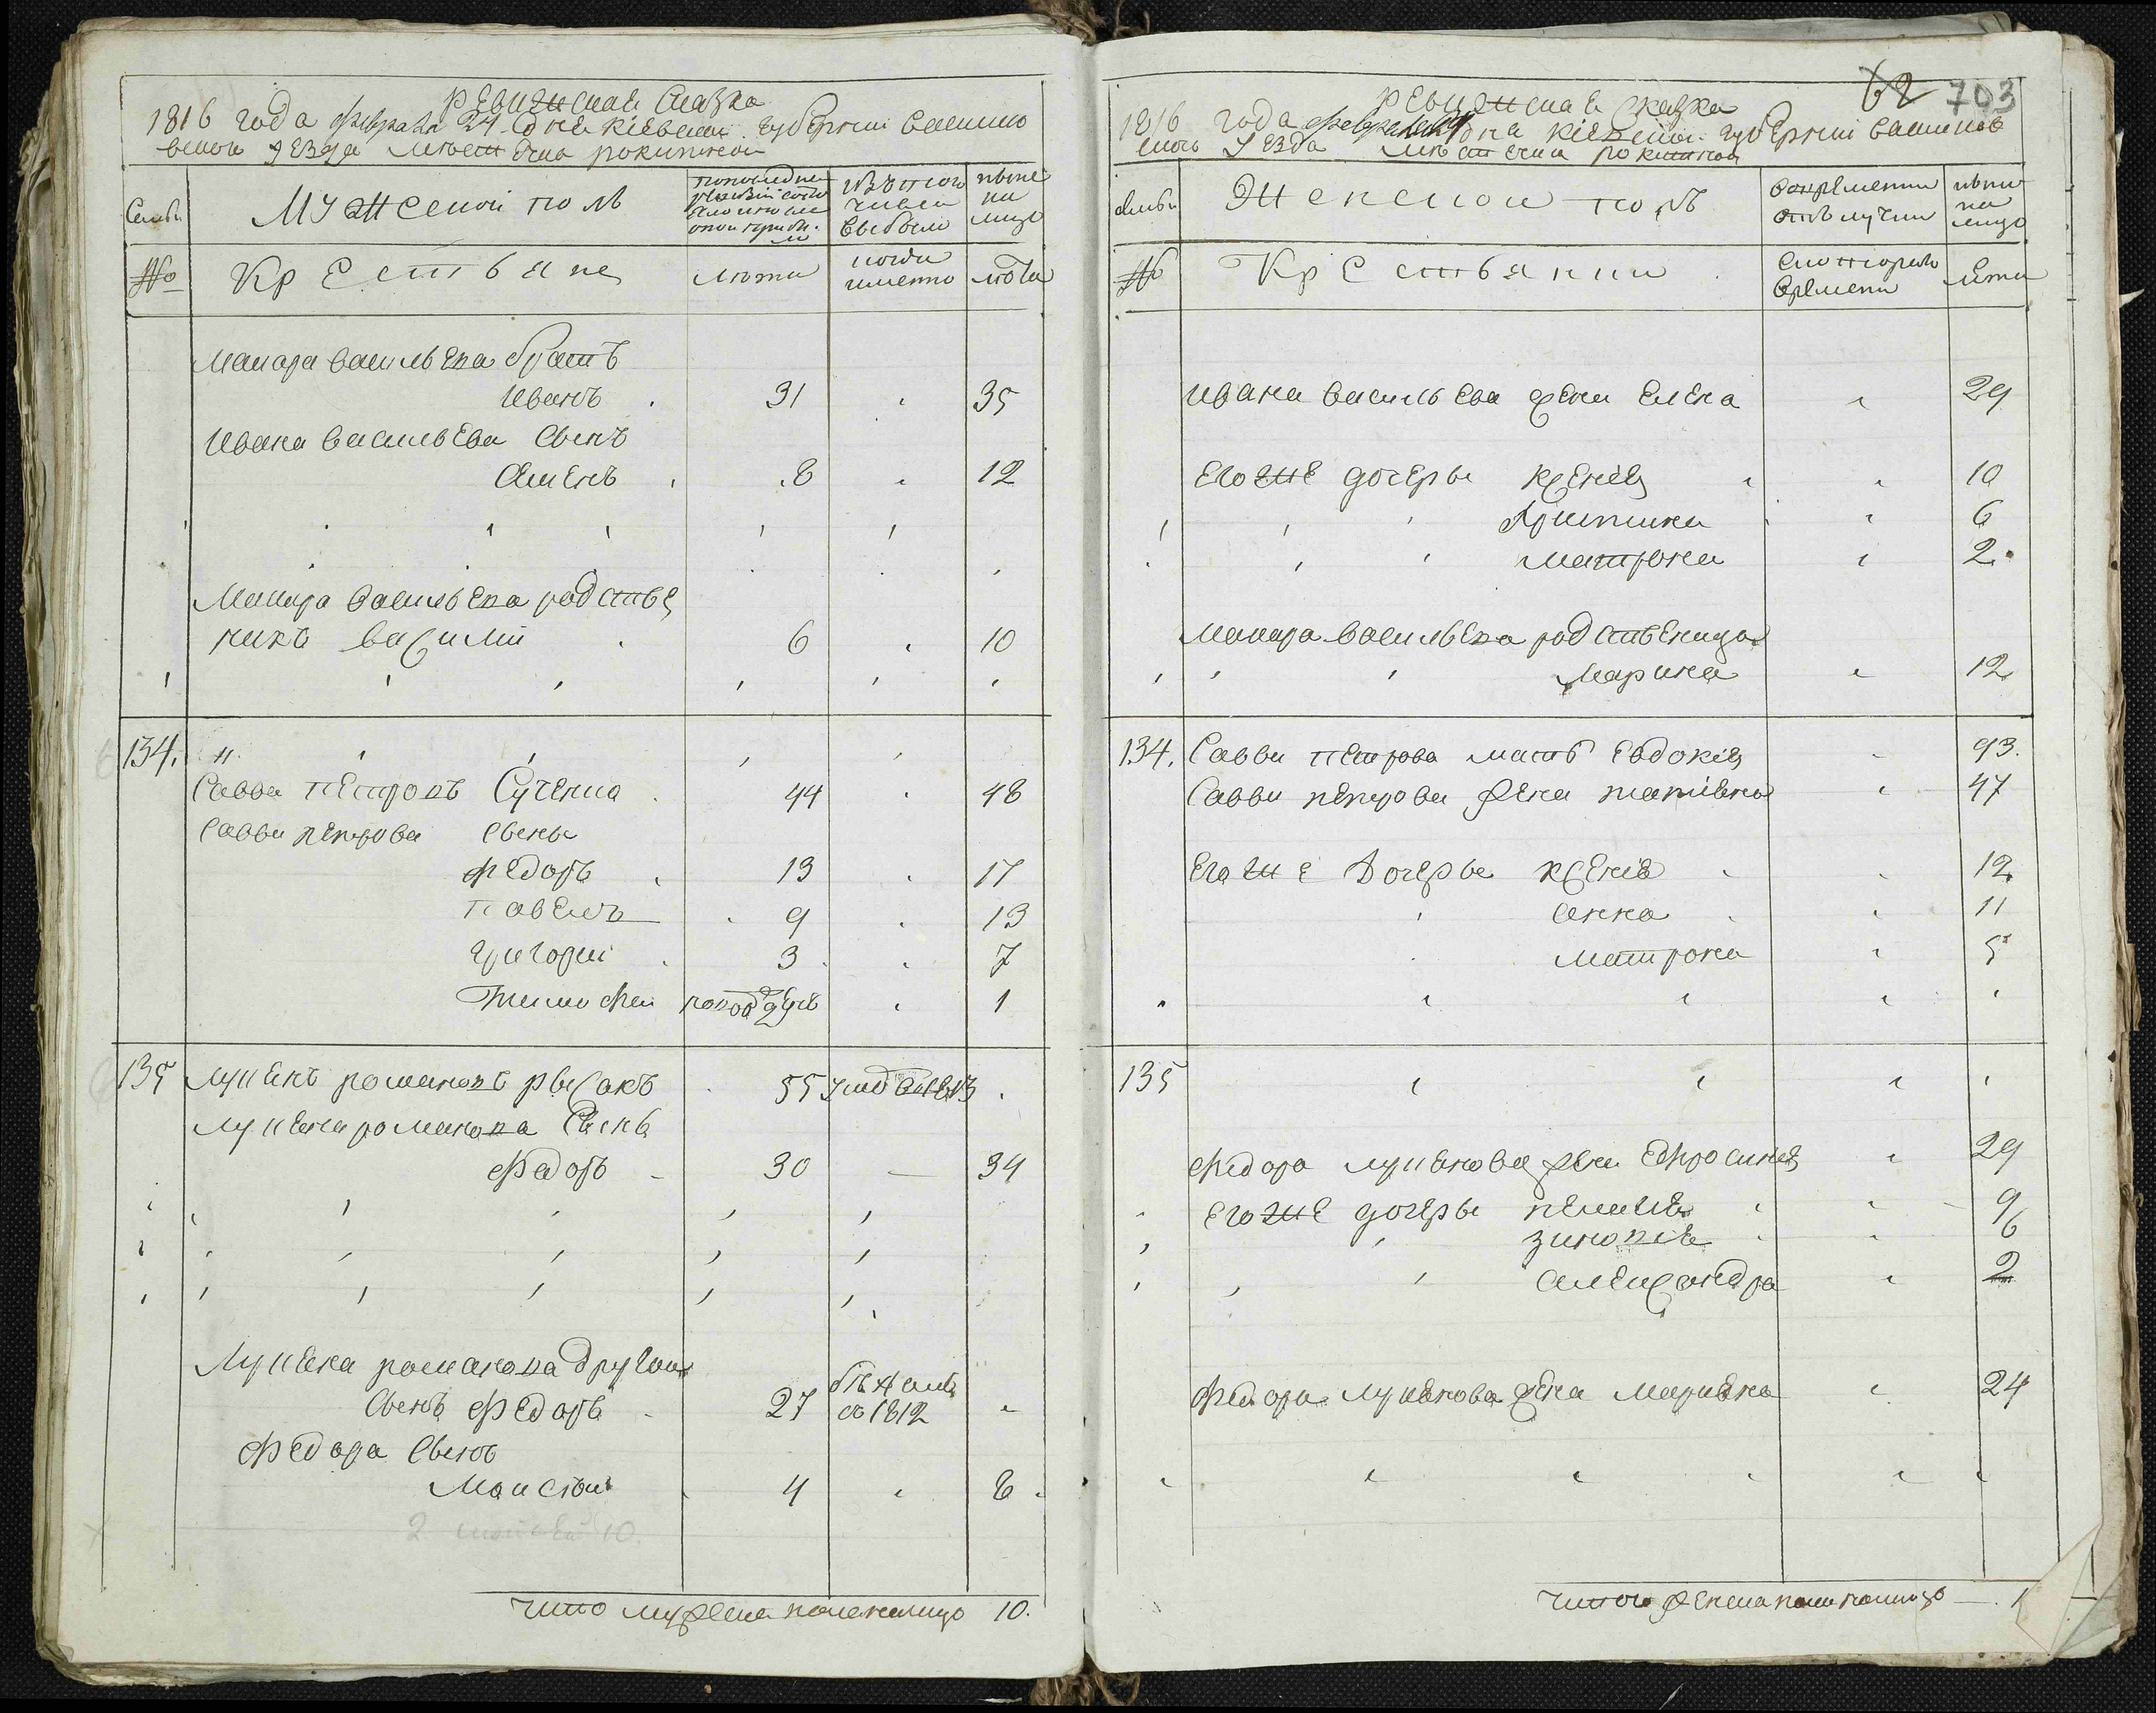 Ревизская Сказка
1816 года февраля 24 дня кіевской губерніи василков
скаго уезда местечка рокитной
Семьи
Мужеской полъ
по последней ревизіи состояло и после оной прибыло
изъ того числа выбыло
ныне на лицо
№
Крестьяне
лета
когда именно
лета
Макара васильева братъ
Иванъ 31 35
Ивана васильева сынъ
Семенъ 8 12
Макара васильева родстве
никъ василій 6 10
134.
Савва петровъ Сученко 44 48
Саввы петрова сыны
федоръ 13 17
павелъ 9 13
григорій 3 7
Тимофей 1
135 Лукянъ романовъ рысакъ 55 умъ 1813
Лукяна романова сынъ
федоръ 30 — 34
Лукяна романова другой
сынъ федоръ 27 бежалъ
въ 1812
федора сынъ
Моисей 4 8
2 10.
Итого мужеска пола на лицо 10.
62 703
Ревизская Сказка
1816 года февраля дня кіевской губерніи василков
скаго уезда местечка рокитной
семьи
Женской полъ
во временной отлучки
ныне на лицо
№
Крестьянки
с котораго времени
лета
Ивана васильева жена елена 29
его же дочеры ксенія 10
христина 6
матрона 2.
Макара васильева родственица
Марина 12
134. Саввы петрова мать евдокія 93.
Саввы петрова жена татіяна 47
его же дочеры ксенія 12
анна 11
матрона 5
135
федора лукянова жена ефросинія 29
его же дочеры 9
зиновія 6
александра 2
федора лукянова жена маріяна 24
Итого женска пола на лицо —